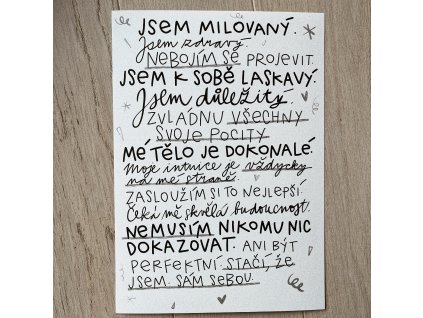 JSEM MILOVANÝ.
Jsem zdravý.
NEBOJÍM SE PROJEVIT.
JSEM K SOBĚ LASKAVÝ.
Jsem důležitý.
ZVLÁDNU VŠECHNY
SVOJE POCITY
MÉ TĚLO JE DOKONALÉ.
Moje intuice je vždycky
na mé straně.
ZASLOUŽÍM SI TO NEJLEPŠÍ.
Čeká mě skvělá budoucnost.
NEMUSÍM NIKOMU NIC
DOKAZOVAT. ANI BÝT
PERFEKTNÍ. STAČÍ, ŽE
JSEM. SÁM SEBOU.